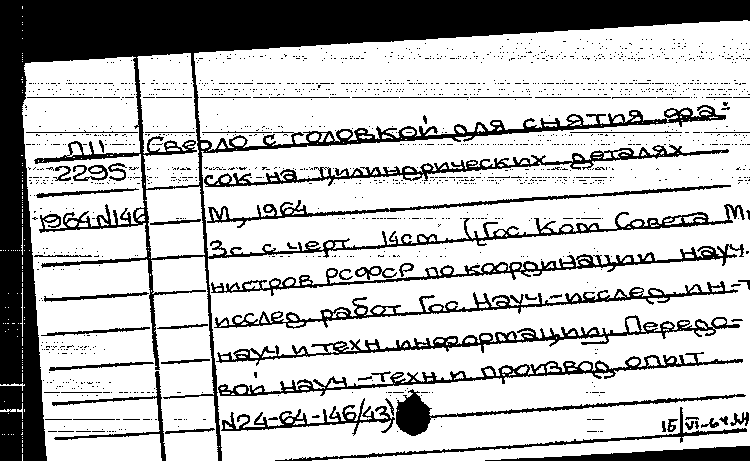 П11 Сверло с головкой для снятия фа-
2295 сок на цилиндрических деталях
1964N146 М., 1964
3с. с черт. 14см. (Гос. Ком Совета Ми
нистров РСФСР по координации науч.
исслед. работ Гос. Науч.-исслед. ин-т
науч. и техн. информации. Передо-
вой науч.-техн. и производ. опыт
N24-64-146/43)
15/VI-64